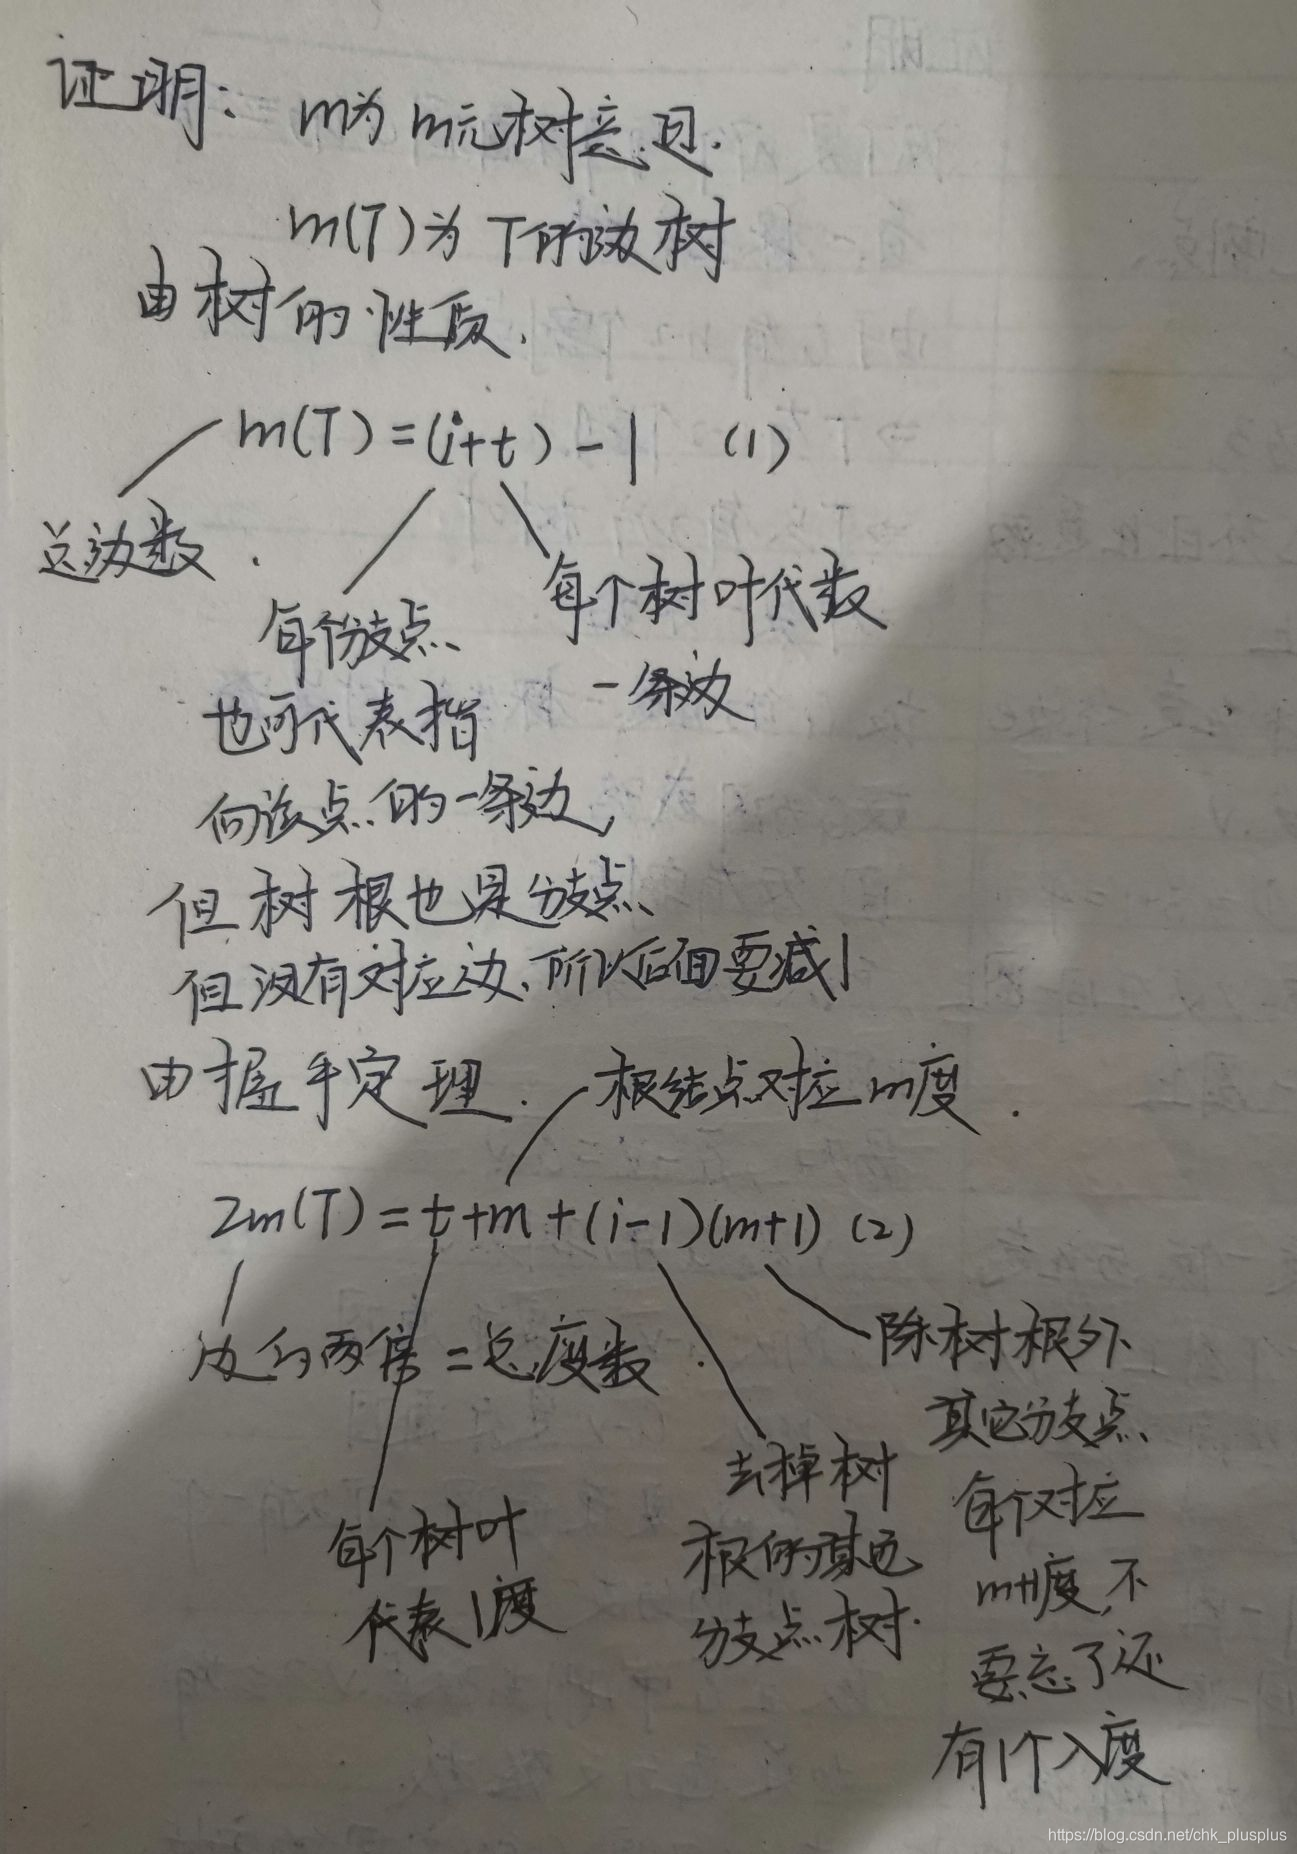 证明:
m为m元树意思.
m(T)为T的边树
由树的性质,
m(T)=(i+t)-1 (1)
总边数.
每个分支点
也可代表指
向该点的一条边,
但树根也是分支点
但没有对应边,所以后面要减1
每个树叶代数
一条边
由握手定理. 根结点对应m度.
2m(T)=t+m+(i-1)(m+1) (2)
边的两倍=总度数.
每个树叶
代表1度
去掉树
根的其它
分支点树.
除树根外
其它分支点
每个对应
m+1度,不
要忘了还
有1个入度
https://blog.csdn.net/chk_plusplus